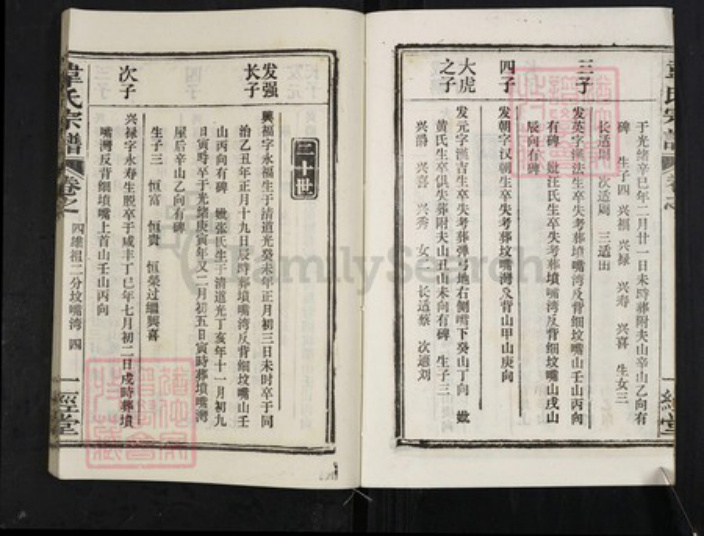 于光绪辛巳年二月廿一日未時葬附夫山辛山乙向有
碑 生子四 兴福 兴禄 兴寿 兴喜 生女三
长适 次适 三适田
三子
发英字漢法生卒失考葬墳嘴湾及背细坟嘴山壬山丙向
有碑 妣汪氏生卒失考葬墳嘴湾反背细坟嘴山戌山
辰向有碑
四子
发朝字汉朝生卒失考葬坟嘴湾及背山甲山庚向
大虎
之子
发元字漢吉生卒失考葬弹弓地右侧嘴下癸山丁向 妣
黄氏生卒俱失葬附夫山丑山未向有碑 生子三
兴爵 兴喜 兴秀 女二 长适蔡 次适刘
二十世
发强
长子
興福字永福生于清道光癸未年正月初三日未时卒于同
治乙丑年正月十九日辰時葬墳嘴湾反背细坟嘴山壬
山丙向有碑 妣张氏生于清道光丁亥年十一月初九
日寅時卒于光绪庚寅年又二月初五日寅時葬墳嘴灣
屋后辛山乙向有碑
生子三 恒富 恒貴 恒荣过繼興喜
次子
兴禄字永寿生殁卒于咸丰丁巳年七月初二日戌時葬墳
嘴灣反背细墳嘴上首山壬山丙向
韋氏宗譜 卷之一
四雄祖二分坟嘴湾 四
一經堂
FamilySearch